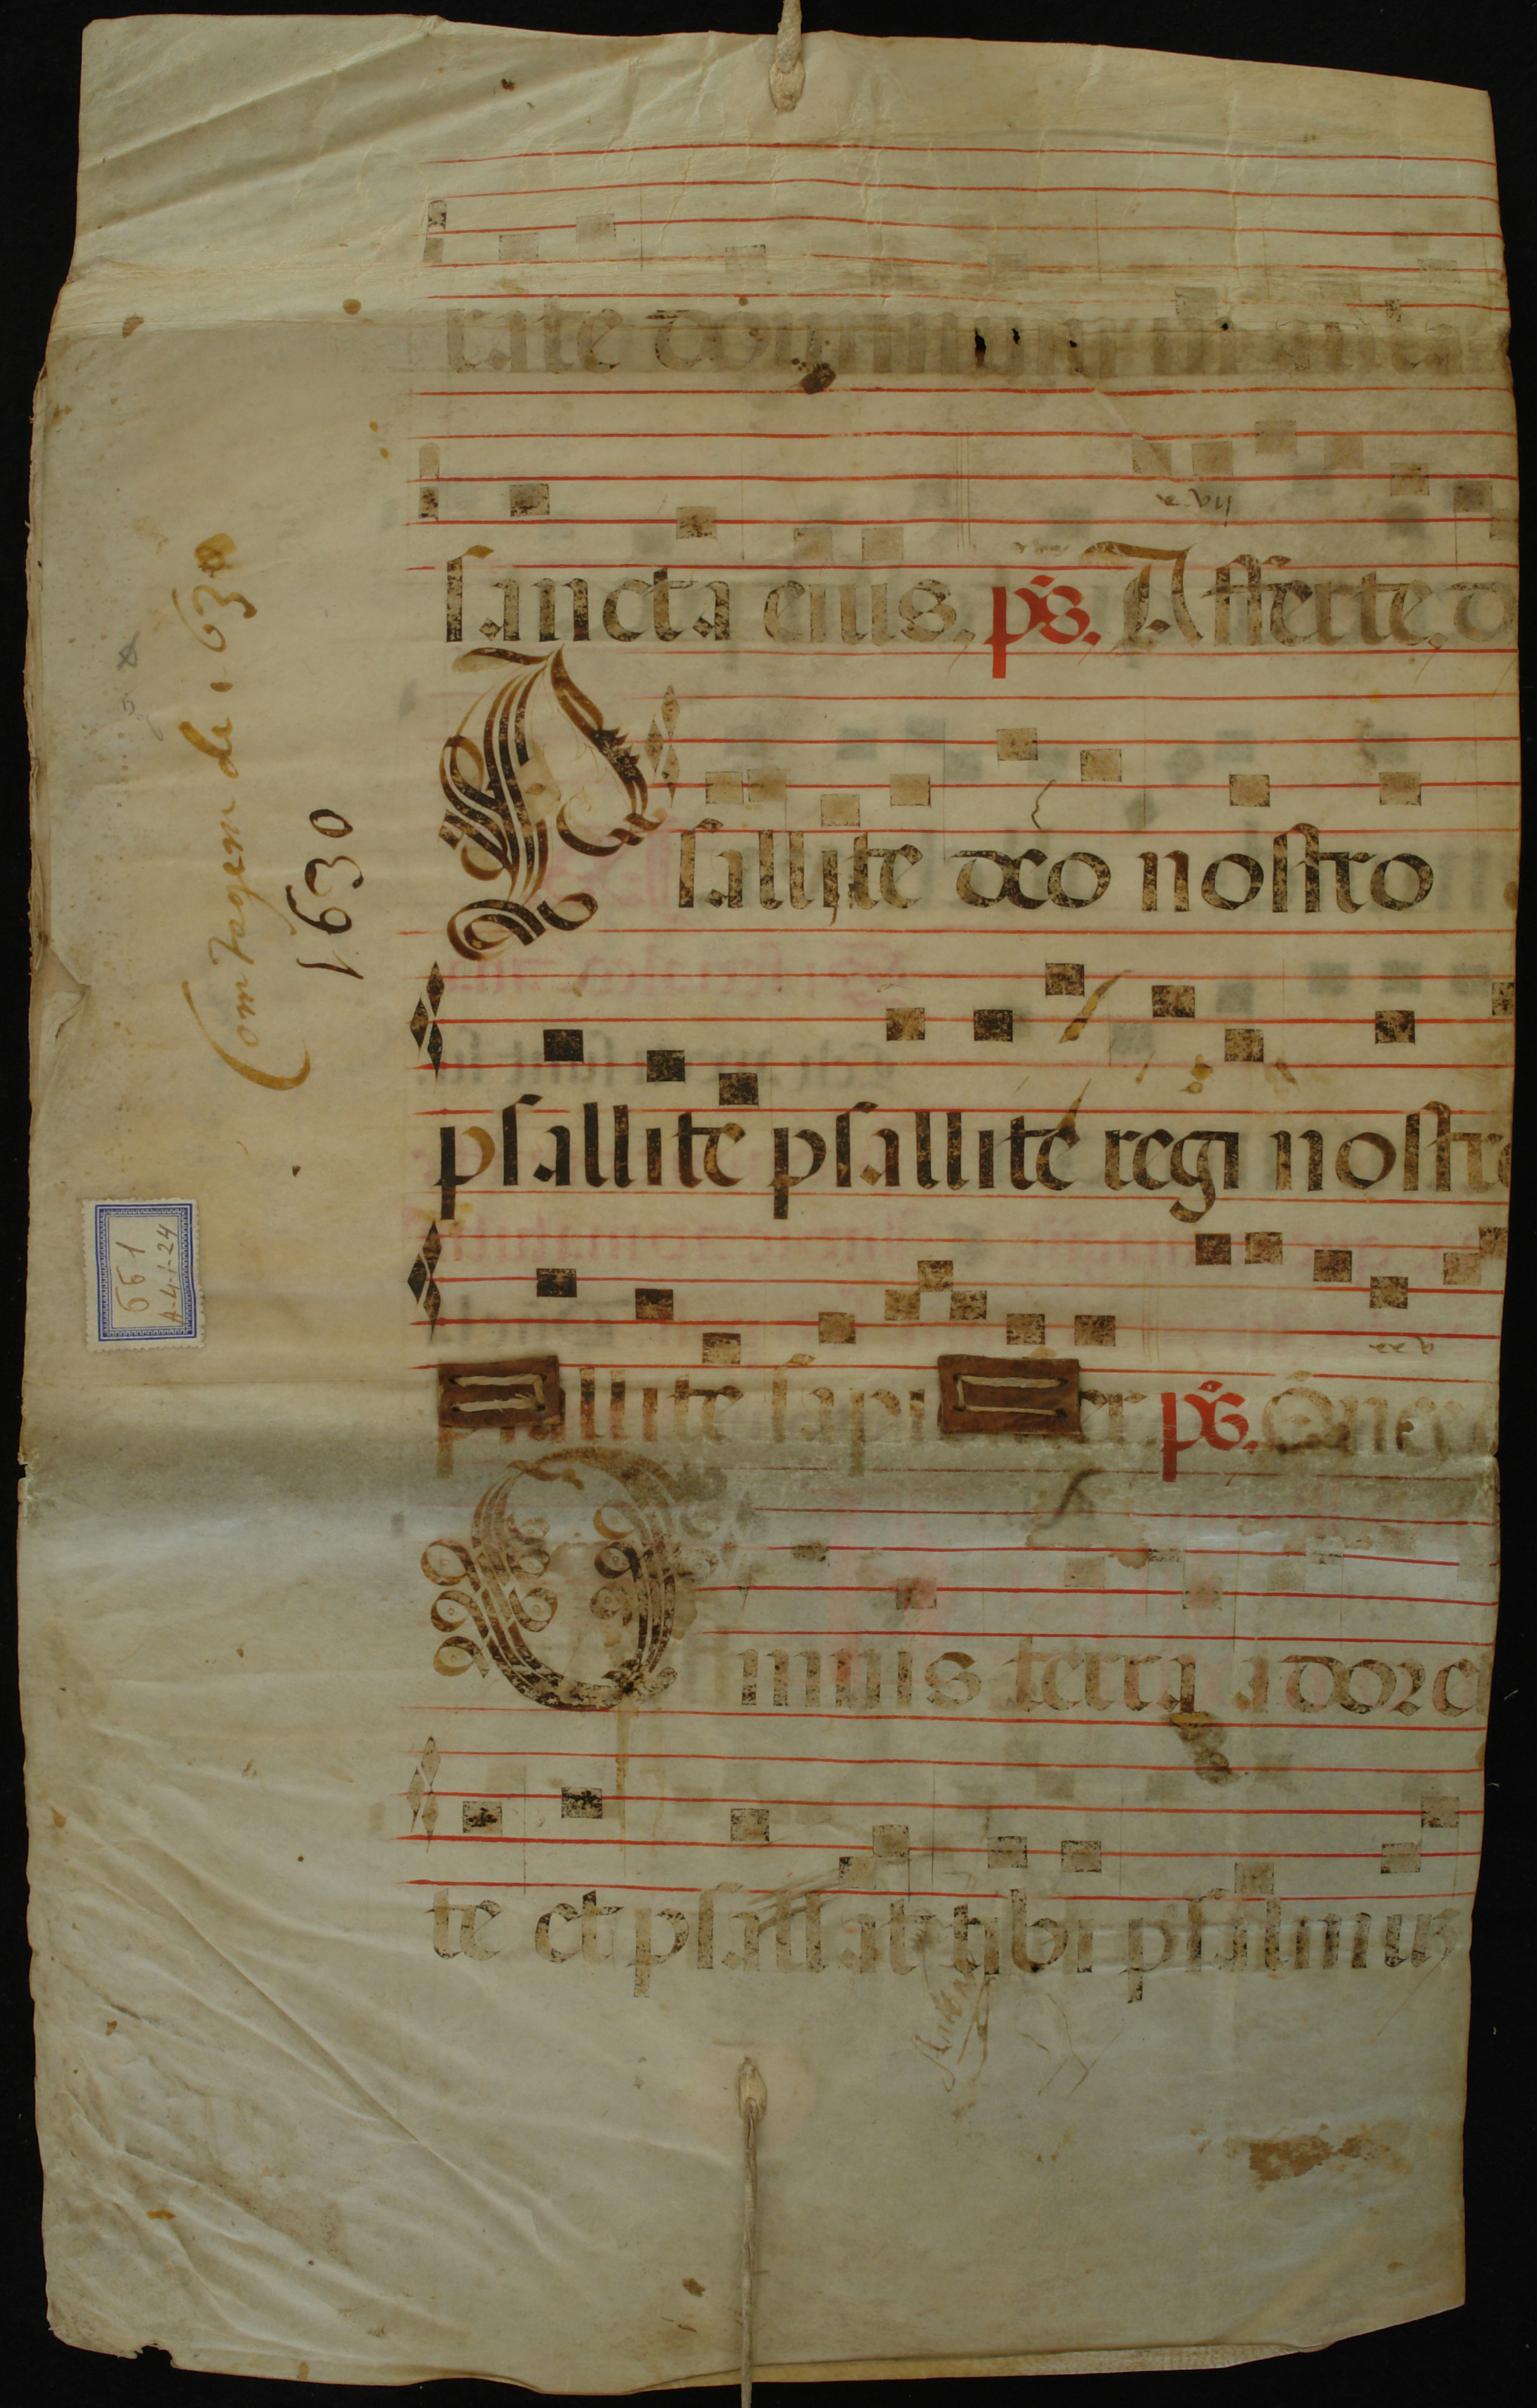 rate dominum in aula
sancta eius. ps. Afferte. d
Psallite deo nostro
psallite psallite regi nostro
psallite sapi ter ps. Omnes
Omnis terra adore
te et psallat tibi psalmus
Contagem de 1630
1630
661
A-4-1-24